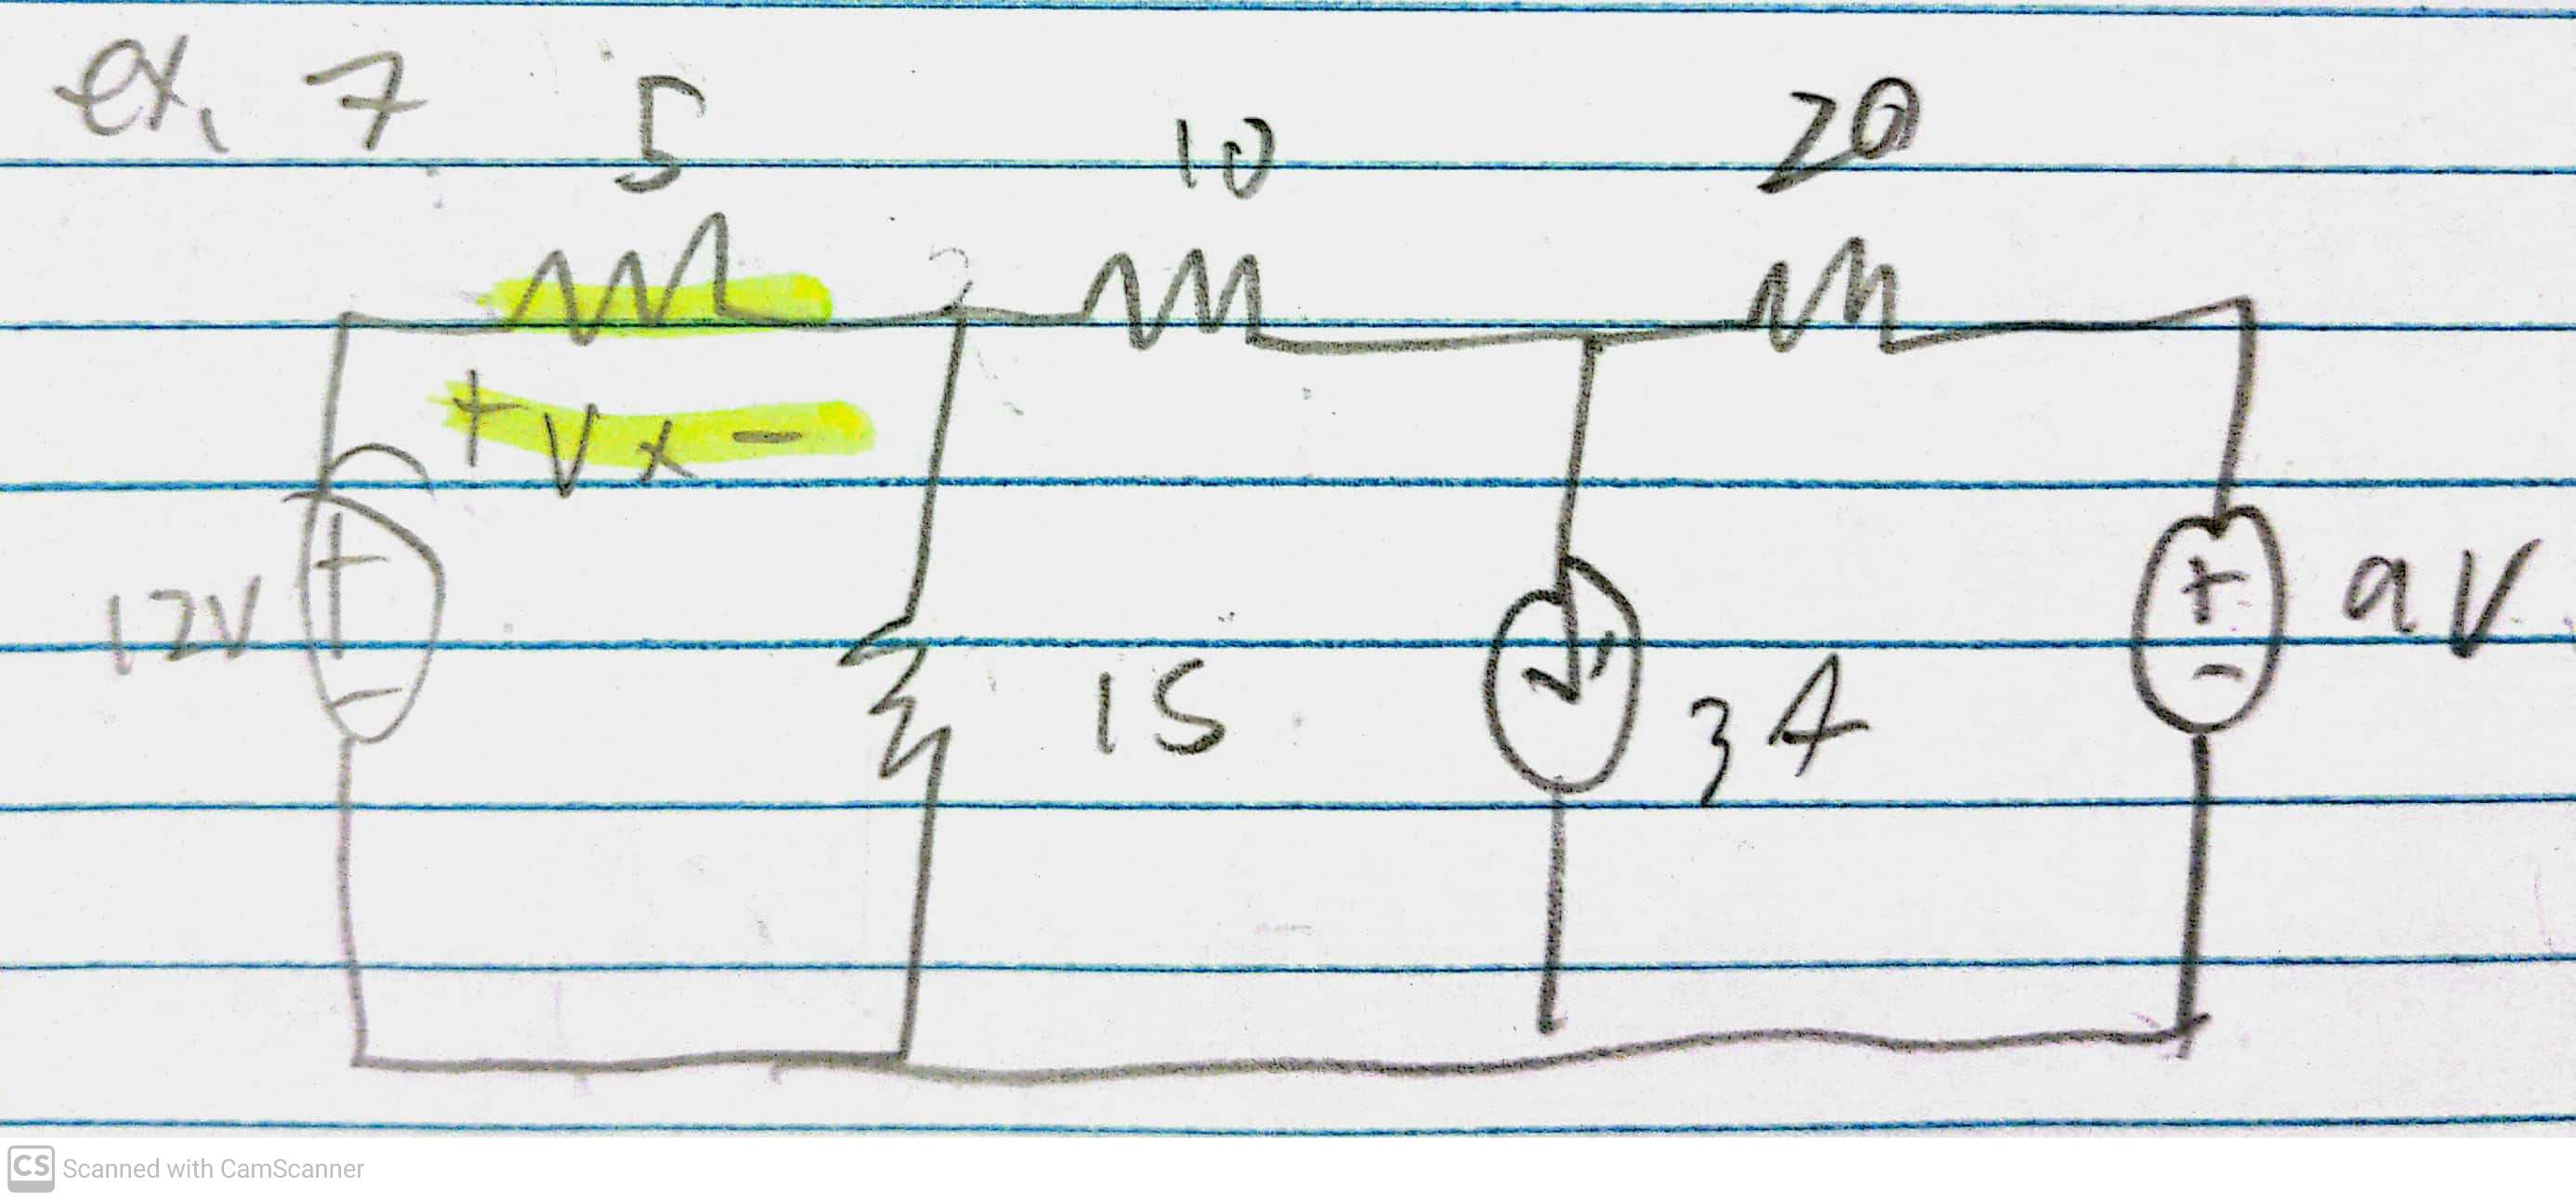 ex. 7
5
10
20
+ Vx -
12V
+
-
15
3A
+
-
9V
CS Scanned with CamScanner